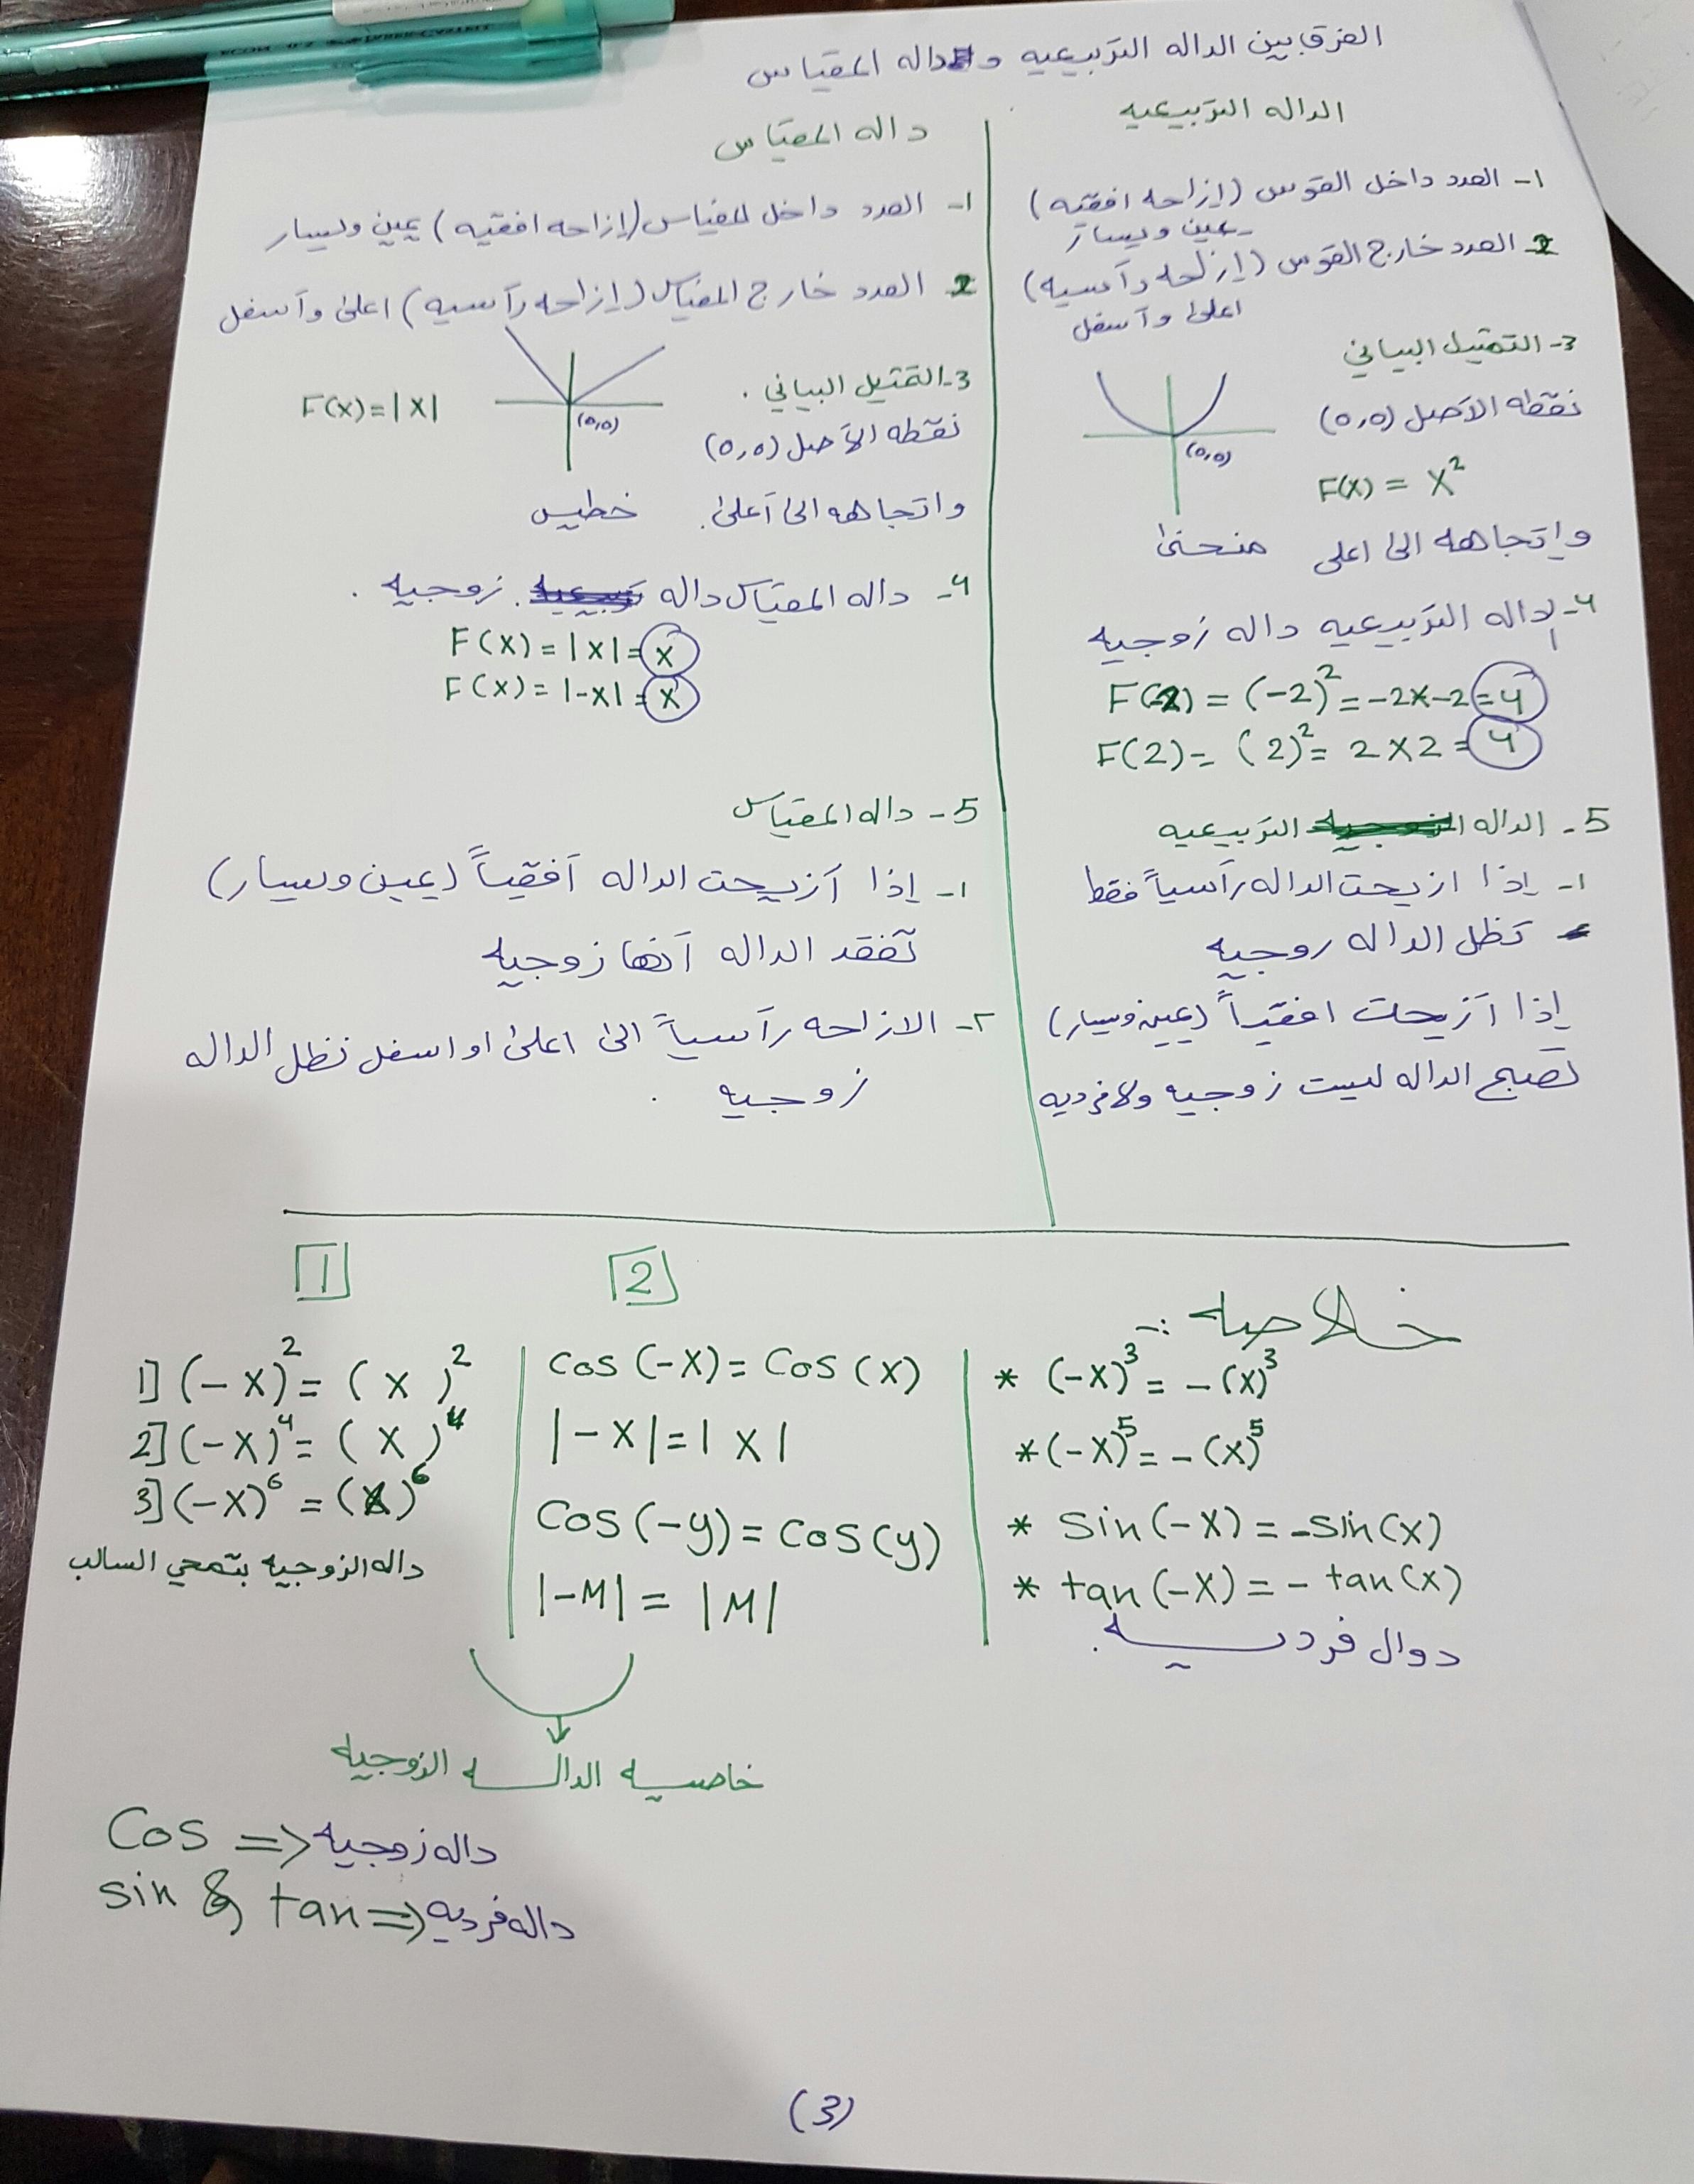 الفرق بين الداله التربيعيه وداله المقياس
الداله التربيعيه
١- العدد داخل القوس (إزاحه افقيه)
يمين ويسار
2- العدد خارج القوس (إزاحه رآسيه)
اعلى وآسفل
3- التمثيل البياني
نقطه الآصل (0,0)
(0,0)
F(x) = x²
وإتجاهه الى اعلى منحنى
4- الداله التربيعيه داله زوجيه
F(-2) = (-2)² = -2x-2 = 4
F(2) = (2)² = 2 x 2 = 4
5- الداله التربيعيه
١- إذا ازيحت الداله رآسياً فقط
تظل الداله روجيه
إذا آزيحت افقياً (يمين ويسار)
تصبح الداله ليست زوجيه ولا فرديه
داله المقياس
١- العدد داخل المقياس (إزاحه افقيه) يمين ويسار
2- العدد خارج المقياس (إزاحه رآسيه) اعلى وآسفل
3- التمثيل البياني .
(0,0)
F(x) = |x|
نقطه الآصل (0,0)
واتجاهه الى آعلى. خطيس
4- داله المقياس داله زوجيه .
F(x) = |x| = x
F(x) = |-x| = x
5- داله المقياس
١- إذا آزيحت الداله آفقياً (يمين ويسار)
تفقد الداله آنها زوجيه
٢- الازاحه رآسياً الى اعلى او اسفل تظل الداله
زوجيه .
خلاصه :-
* (-x)³ = -(x)³
* (-x)⁵ = -(x)⁵
* Sin(-x) = -sin(x)
* tan(-x) = - tan(x)
دوال فرديه.
2
Cos(-x) = Cos(x)
|-x| = |x|
Cos(-y) = Cos(y)
|-M| = |M|
1
1] (-x)² = (x)²
2] (-x)⁴ = (x)⁴
3] (-x)⁶ = (x)⁶
داله الزوجيه بتمحي السالب
خاصيه الداله الزوجيه
Cos => داله زوجيه
sin & tan => داله فرديه
(3)